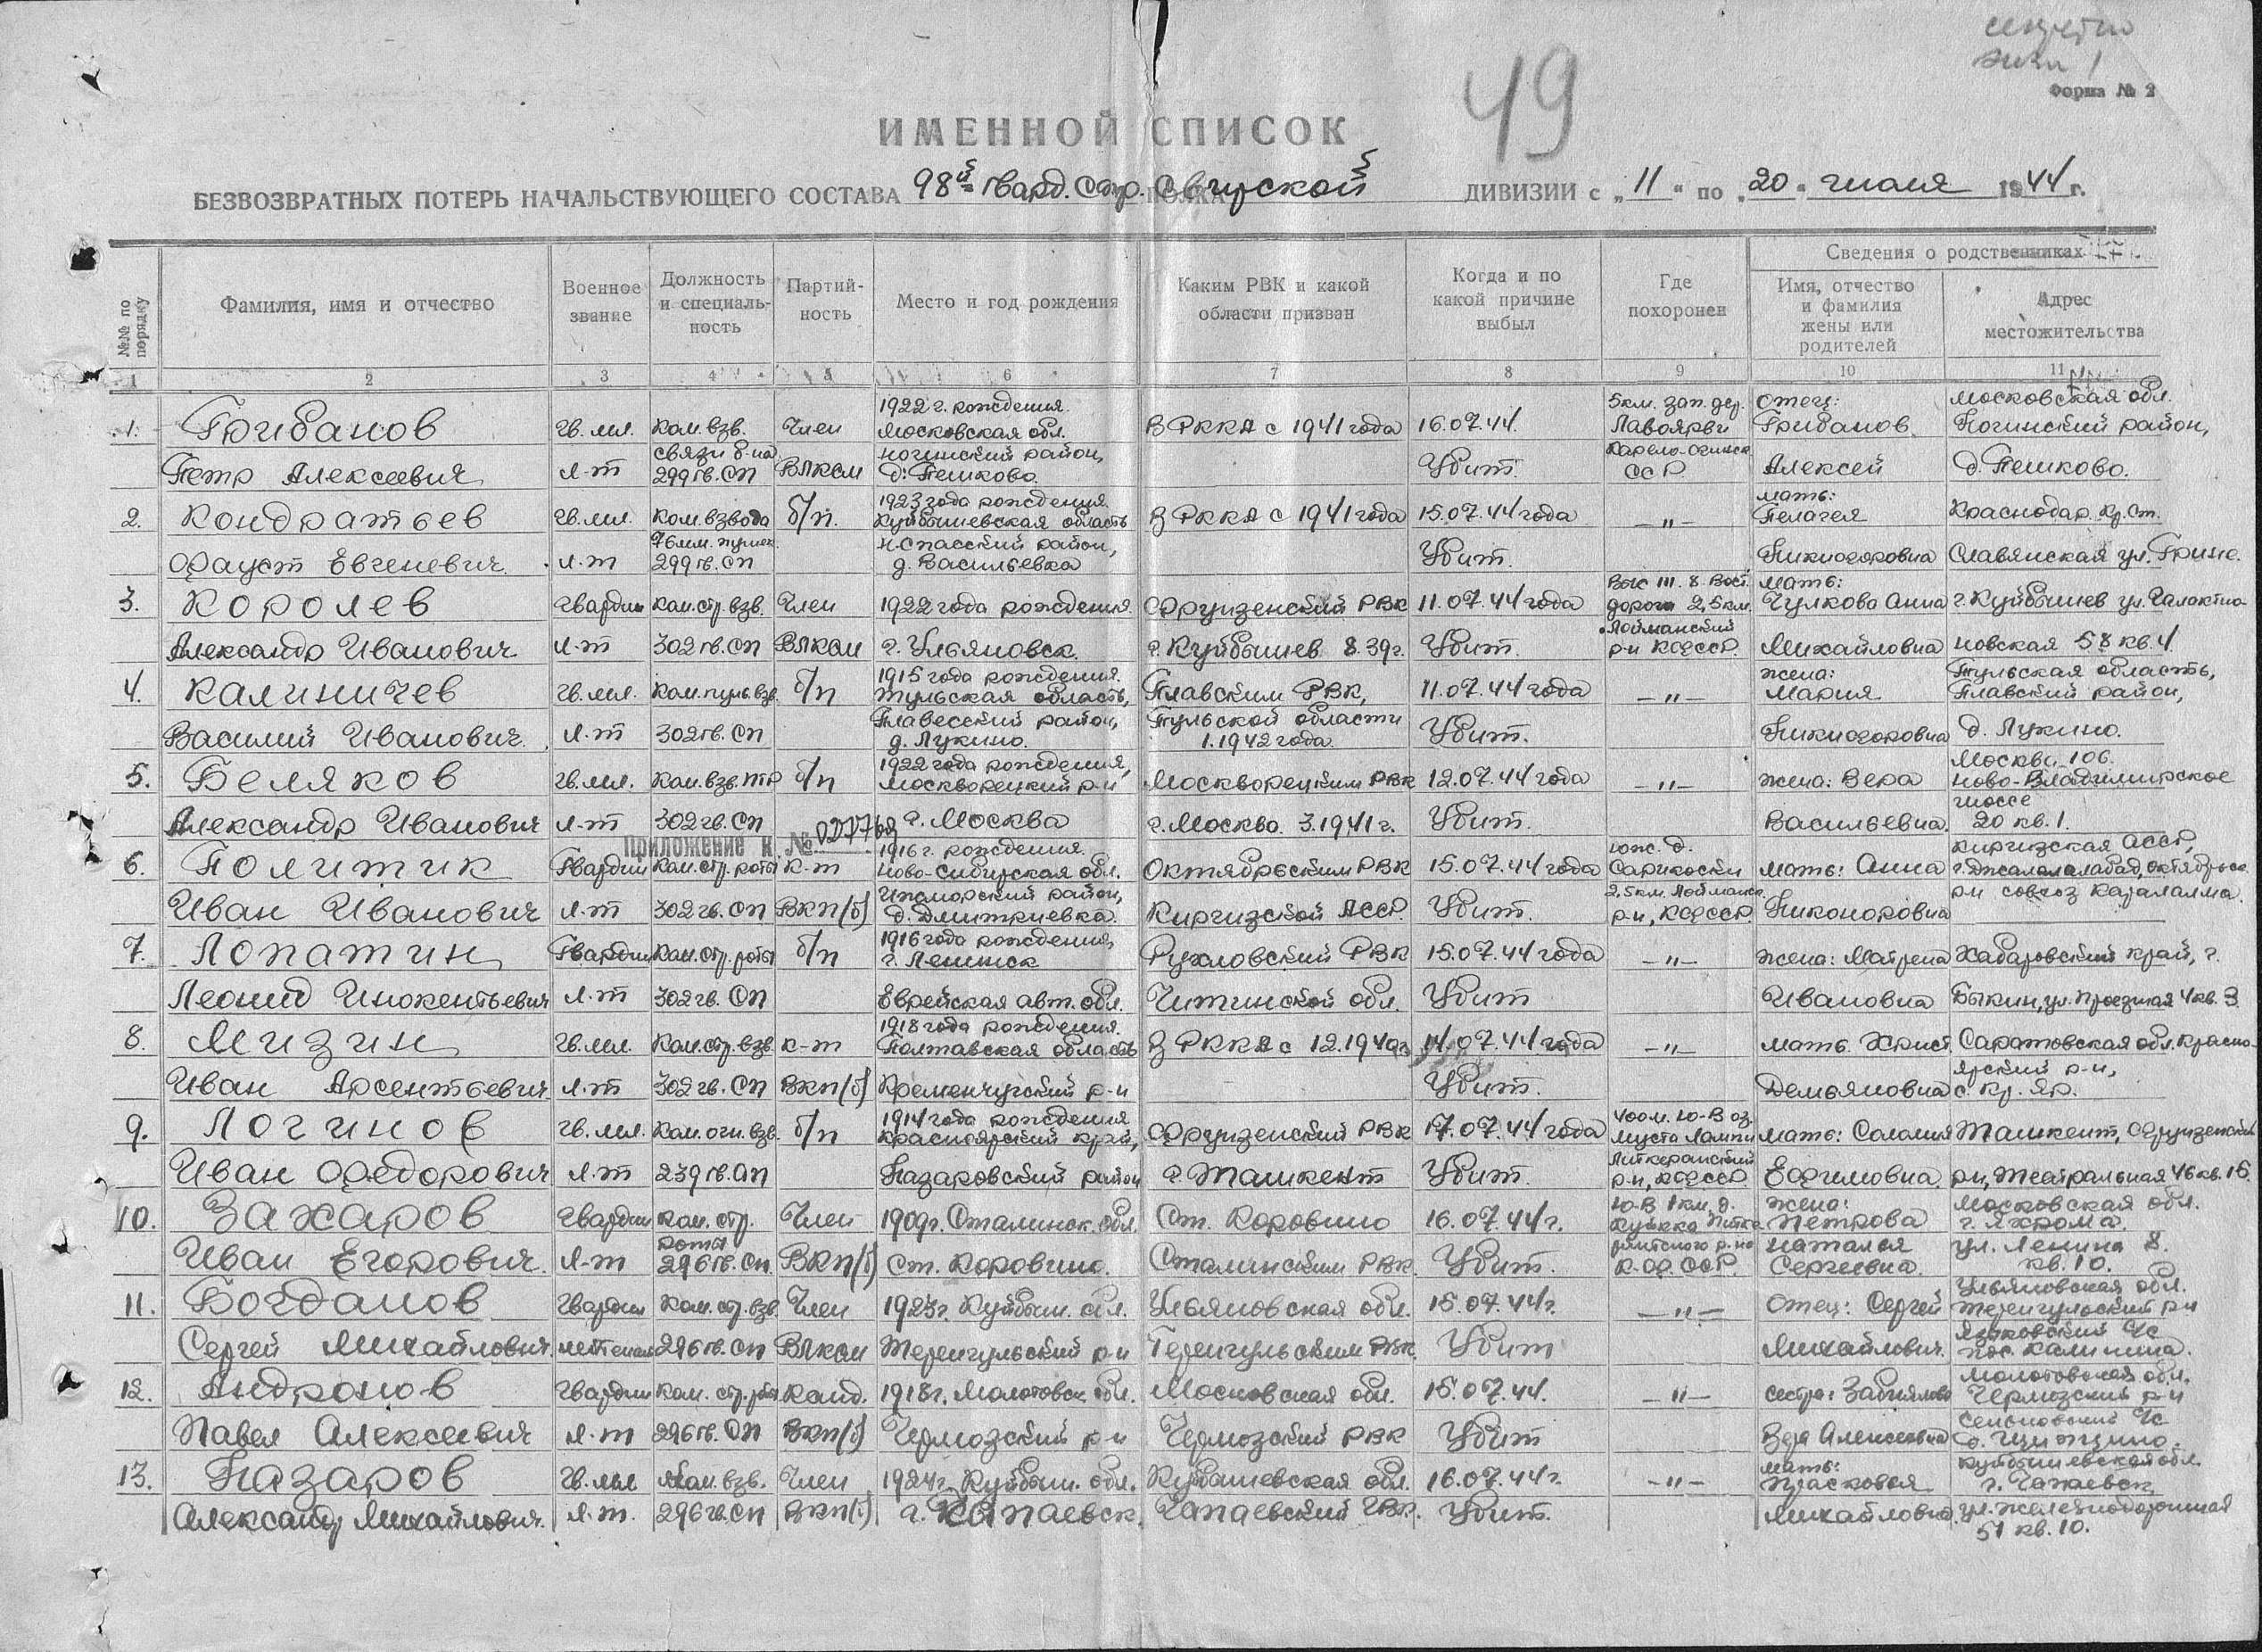 секретно
экз. 1
49
Форма № 2
ИМЕННОЙ СПИСОК
БЕЗВОЗВРАТНЫХ ПОТЕРЬ НАЧАЛЬСТВУЮЩЕГО СОСТАВА 98й Гвард. Стр. Свирской ДИВИЗИИ с „11“ по „20“ июля 1944 г.
№№ по порядку
Фамилия, имя и отчество
Военное звание
Должность и специальность
Партийность
Место и год рождения
Каким РВК и какой области призван
Когда и по какой причине выбыл
Где похоронен
Сведения о родственниках
Имя, отчество и фамилия жены или родителей
Адрес местожительства
1 2 3 4 5 6 7 8 9 10 11
1. Грибанов Петр Алексеевич гв. мл. л-т Ком. взв. связи б-на 299 гв. СП Член ВЛКСМ 1922 г. рождения. Московская обл. Ногинский район, д. Пешково. В РККА с 1941 года 16.07.44. Убит. 5 км. зап. дер. Лавоярви Карело-Финск. ССР Отец: Грибанов Алексей Московская обл. Ногинский район, д. Пешково.
2. Кондратьев Фауст Евгеневич гв. мл. л-т Ком. взвода 76 мм. 299 гв. СП б/п. 1923 года рождения. Куйбышевская область Н-Спасский район, д. Васильевка В РККА с 1941 года 15.07.44 года Убит. -"- мать: Пелагея Никифоровна Краснодар. Кр. Ст. Славянская ул.
3. Королев Александр Иванович Гвардии л-т Ком. стр. взв. 302 гв. СП Член ВЛКСМ 1922 года рождения г. Ульяновск. Фрунзенский РВК г. Куйбышев 8.39 г. 11.07.44 года Убит. дороги 2,5 км. Лойманский р-н КФССР. мать: Чулкова Анна Михайловна г. Куйбышев ул. Галактионовская 58 кв. 4
4. Калиничев Василий Иванович гв. мл. л-т Ком. пул. взв. 302 гв. СП б/п 1915 года рождения. Тульская область, Плавесский район, д. Лукино. Плавским РВК, Тульской области 1.1942 года. 11.07.44 года Убит. -"- жена: Мария Никифоровна Тульская область, Плавский район, д. Лукино.
5. Беляков Александр Иванович гв. мл. л-т Ком. взв. ПТР 302 гв. СП б/п 1922 года рождения, Москворецкий р-н г. Москва Москворецким РВК г. Москва. 3.1941 г. 12.07.44 года Убит. -"- жена: Вера Васильевна. Москва, 106. Ново-Владимирское шоссе 20 кв. 1.
Приложение к №
6. Политик Иван Иванович Гвардии л-т Ком. стр. роты 302 гв. СП к-т ВКП(б) 1916 г. рождения. Ново-Сибирская обл. Ижморский район, д. Дмитриевка. Октябрьским РВК Киргизской АССР. 15.07.44 года Убит. юж. д. Сарикоски 2,5 км. Лойманск. р-н, КФССР. мать: Анна Никоноровна Киргизская АССР, г. Джалалалабад, Октябрьск. р-н совхоз Карагалма.
7. Лопатин Леонид Инокентьевич Гвардии л-т Ком. стр. роты 302 гв. СП б/п 1916 года рождения, г. Ленинск Еврейская авт. обл. Рухловский РВК Читинской обл. 15.07.44 года Убит -"- жена: Матрена Ивановна Хабаровский край, г. Быкин, ул. Проезжая 4 кв. 3
8. Мизин Иван Арсентьевич гв. мл. л-т Ком. стр. взв. 302 гв. СП к-т ВКП(б) 1918 года рождения. Полтавская область Кременчугский р-н В РККА с 12.1940 г. 14.07.44 года Убит. -"- мать. Христ. Демьяновна Саратовская обл. Красноярский р-н, с. Кр. Яр.
9. Логинов Иван Федорович гв. мл. л-т Ком. огн. взв. 239 гв. АП б/п 1914 года рождения Красноярский край, Назаровский район Фрунзенский РВК г. Ташкент 17.07.44 года Убит. 400 м. Ю-В оз. Муста Лампи Питкерантский р-н, КФССР. мать: Соломия Ефимовна. Ташкент, Фрунзенский р-н, Театральная 46 кв. 16.
10. Захаров Иван Егорович. Гвардии л-т Ком. стр. роты 296 гв. СП. Член ВКП(б) 1909 г. Сталинск. обл. Ст. Коровино. Ст. Коровино Сталинским РВК. 16.07.44 г. Убит. Ю-В 1 км. д. р-на К.Ф.ССР. жена: Петрова Наталья Сергеевна. Московская обл. г. Яхрома. ул. Ленина 8. кв. 10.
11. Богданов Сергей Михайлович. Гвардии лейтенант Ком. стр. взв. 296 гв. СП Член ВЛКСМ 1923 г. Куйбыш. обл. Теренгульский р-н Ульяновская обл. Теренгульским РВК. 15.07.44 г. Убит -"- Отец: Сергей Михайлович. Ульяновская обл. Теренгульский р-н Языковский с/с пос. Калинина.
12. Андронов Павел Алексеевич Гвардии л-т Ком. стр. роты 296 гв. СП Канд. ВКП(б) 1918 г. Молотовск. обл. Чермозский р-н Московская обл. Чермозский РВК 15.07.44. Убит -"- сестра: Вера Алексеевна Молотовская обл. Чермозский р-н с/с
13. Назаров Александр Михайлович. Гв. мл. л-т. Ком. взв. 296 гв. СП Член ВКП(б) 1924 г. Куйбыш. обл. г. Чапаевск. Куйбышевская обл. Чапаевский ГВК. 16.07.44 г. Убит. -"- мать: Прасковья Михайловна. Куйбышевская обл. г. Чапаевск ул. Железнодорожная 51 кв. 10.